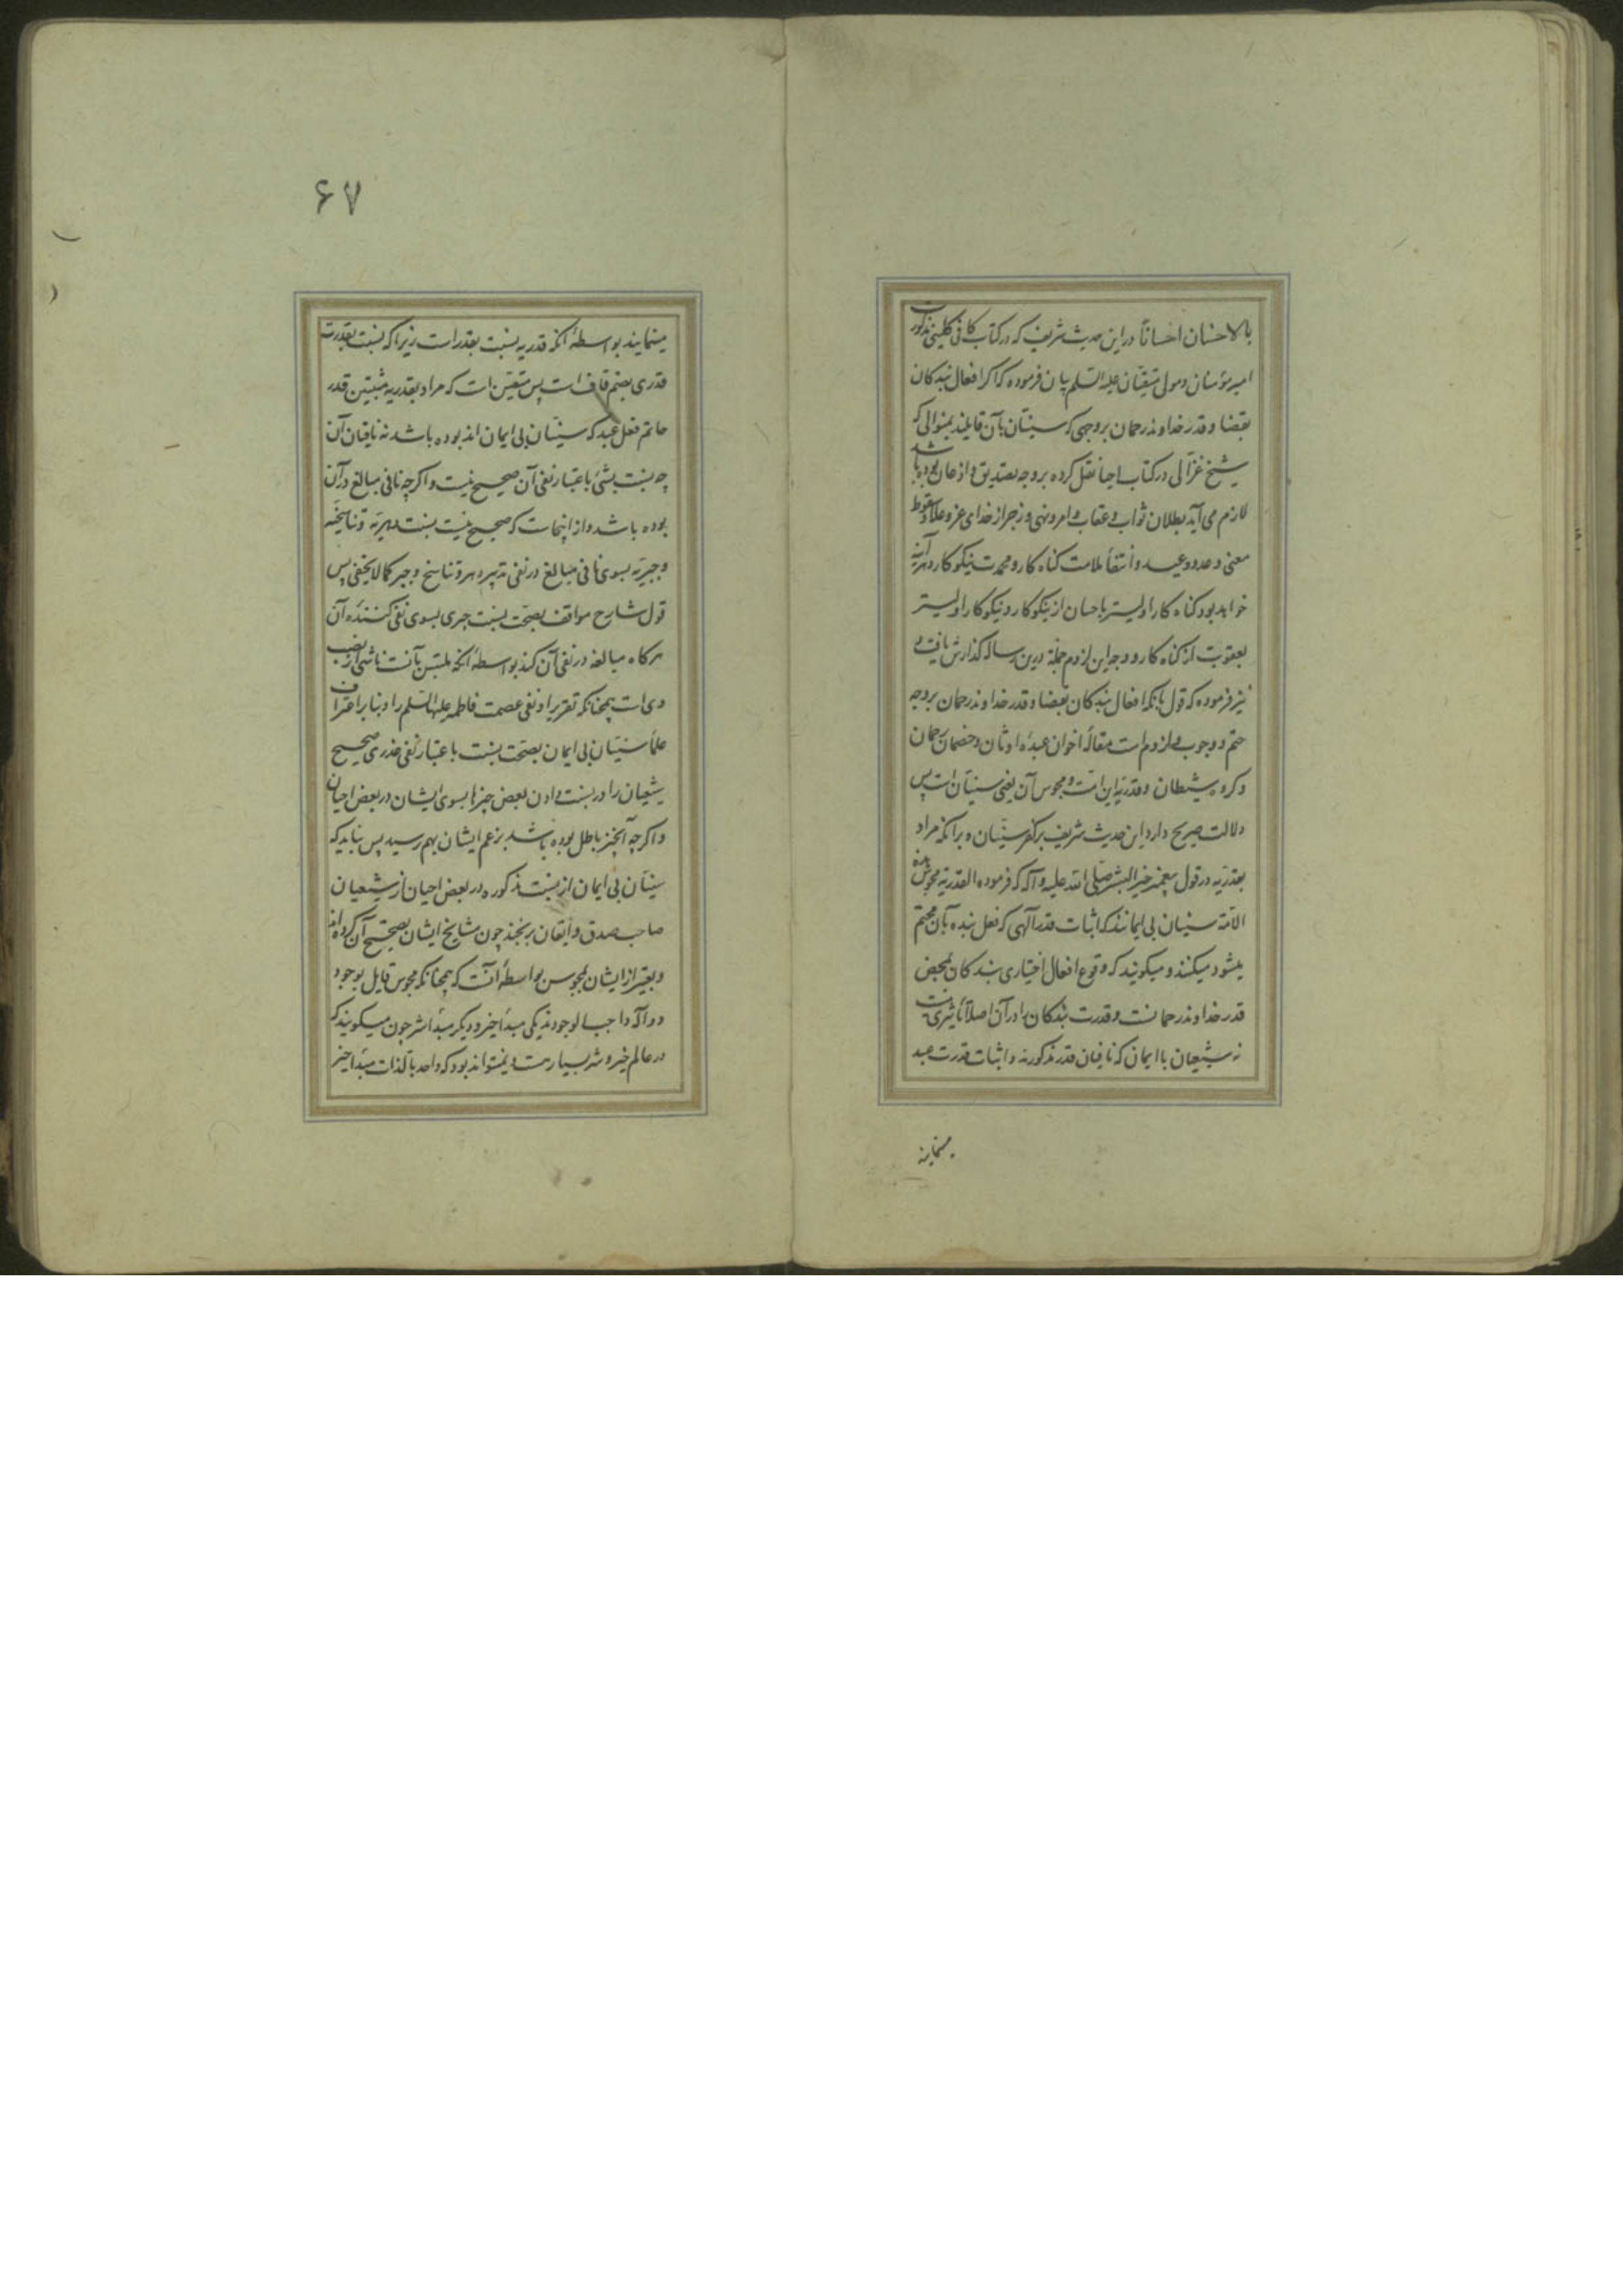 بالاحسان احسانا در این حدیث شریف که در کتاب کافی کلینی مذکور است
امیر مؤمنان و مولی متقیان علیه السلم بیان فرموده که اکر افعال بندکان
بقضا و قدر خداوند رحمان بروجهی که سنیان بآن قایلند بمنوالی که
شیخ غزالی در کتاب احیا نقل کرده بر وجه تصدیق و اذعان بوده باشد
لازم می آید بطلان ثواب و عقاب و امر و نهی و زجر از خدای عز و علا و سقوط
معنی وعد و وعید و انتفأ ملامت کناه کار و محمدت نیکو کار و هر آینه
خواهد بود کناه کار اولیتر باحسان از نیکو کار و نیکو کار اولیتر
بعقوبت از کناه کار و وجه این لزوم جملة درین رساله کذارش یافت و
نیز فرموده که قول بانکه افعال بندکان بقضا و قدر خداوند رحمان بروجه
حتم و وجوب و لزوم است مقالۀ اخوان عبدۀ اوثان و خصمان رحمان
و کروه شیطان و قدریۀ این امت و مجوس آن یعنی سنیان است پس
دلالت صریح دارد این حدیث شریف بر کفر سنیان و برانکه مراد
بقدریه در قول پیغمبر خیر البشر صلی الله علیه و آله که فرموده القدریة مجوس هذه
الامة سنیان بی ایمانند که اثبات قدر آلهی که فعل بنده بآن محتم
میشود میکنند و میکویند که وقوع افعال اختیاری بندکان بمحض
قدر خداوند رحمانست و قدرت بندکان را در آن اصلا تأثیری نیست
نه شیعیان با ایمان که نافیان قدر مذکورند و اثبات قدرت عبد
مینمایند
۶۷
مینمایند بواسطۀ انکه قدریه نسبت بقدر است زیرا که نسبت بقدرت
قدری بضم قاف است پس متعین است که مراد بقدریه مثبتین قدر
حاتم فعل عبد که سنیان بی ایمان اند بوده باشد نه نافیان آن
چه نسبت بشئ باعتبار نفی آن صحیح نیست و اکرچه نافی مبالغ در آن
بوده باشد و از اینجاست که صحیح نیست نسبت دهریه و تناسخیه
و جبریه بسوی نافی مبالغ در نفی تدبیر دهر و تناسخ و جبر کما لا یخفی پس
قول شارح مواقف بصحت نسبت چیزی بسوی نفی کنندۀ آن
هرکاه مبالغه در نفی آن کند بواسطۀ انکه ملتبس بآنست ناشی از نصب
وی است همچنانکه تقریر او نفی عصمت فاطمه علیها السلم را و بنا بر اعتراف
علمأ سنیان بی ایمان بصحت نسبت باعتبار نفی عذری صحیح
شیعیان را در نسبت دادن بعض چیزها بسوی ایشان در بعض احیان
و اکرچه آنچیز باطل بوده باشد بزعم ایشان بهم رسید پس نباید که
سنیان بی ایمان از نسبت مذکوره در بعض احیان از شیعیان
صاحب صدق و ایقان برنجند چون مشایخ ایشان تصحیح آن کرده اند
و تعبیر از ایشان بمجوس بواسطۀ آنست که همچنانکه مجوس قایل بوجود
دو آله واجب الوجودند یکی مبدأ خیر و دیکر مبدأ شر چون میکویند که
در عالم خیر و شر بسیار هست و نمیتواند بود که واحد بالذات مبدأ خیر